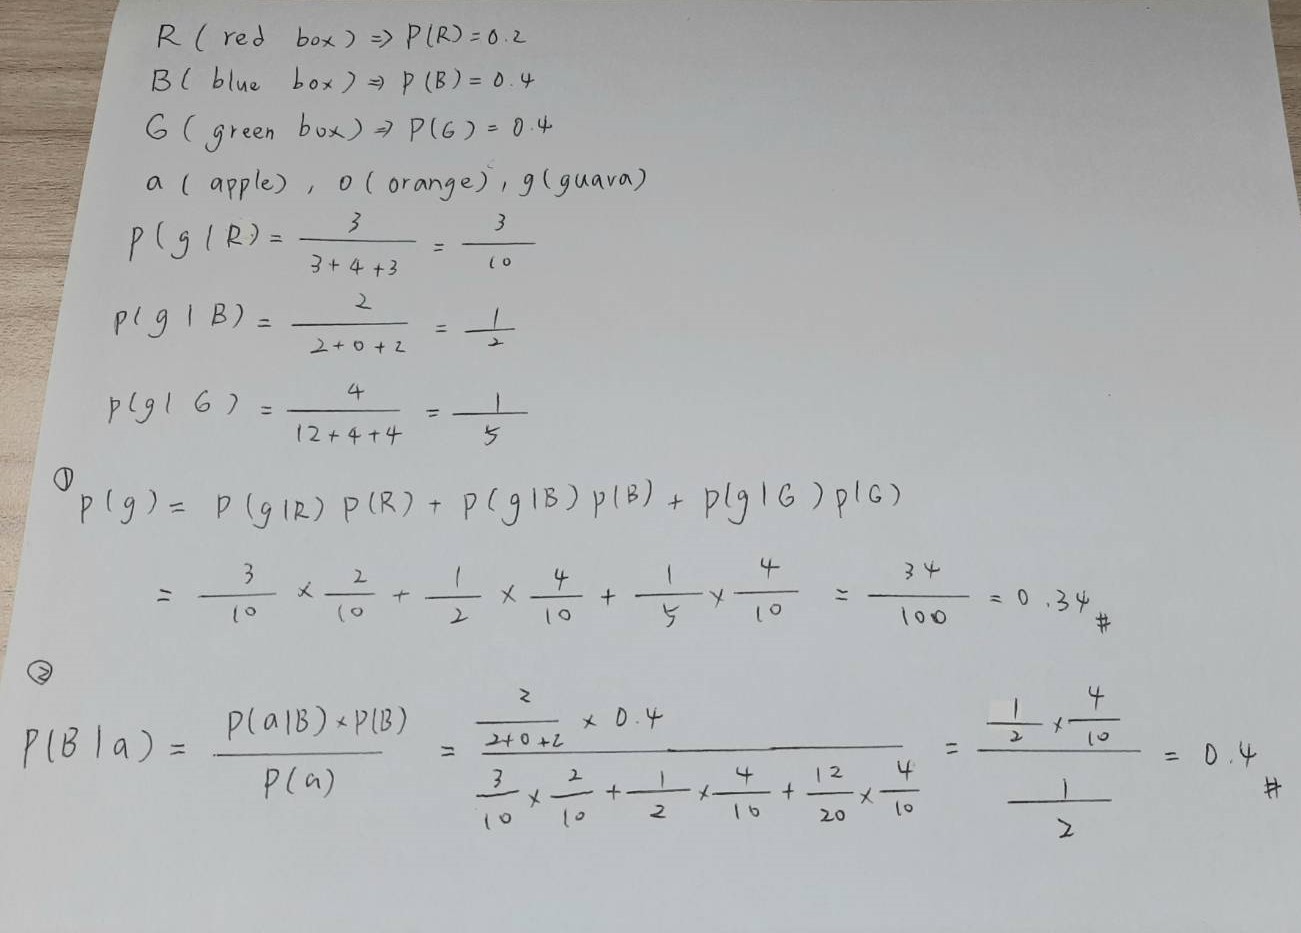 R ( red box ) => P(R) = 0.2
B ( blue box ) => P(B) = 0.4
G ( green box ) => P(G) = 0.4
a ( apple ) , o ( orange ) , g ( guava )
P(g|R) = 3/(3+4+3) = 3/10
P(g|B) = 2/(2+0+2) = 1/2
P(g|G) = 4/(12+4+4) = 1/5
① P(g) = P(g|R) P(R) + P(g|B) P(B) + P(g|G) P(G)
= 3/10 × 2/10 + 1/2 × 4/10 + 1/5 × 4/10 = 34/100 = 0.34 #
②
P(B|a) = (P(a|B) × P(B))/P(a) = (2/(2+0+2) × 0.4)/(3/10 × 2/10 + 1/2 × 4/10 + 12/20 × 4/10) = (1/2 × 4/10)/(1/2) = 0.4 #